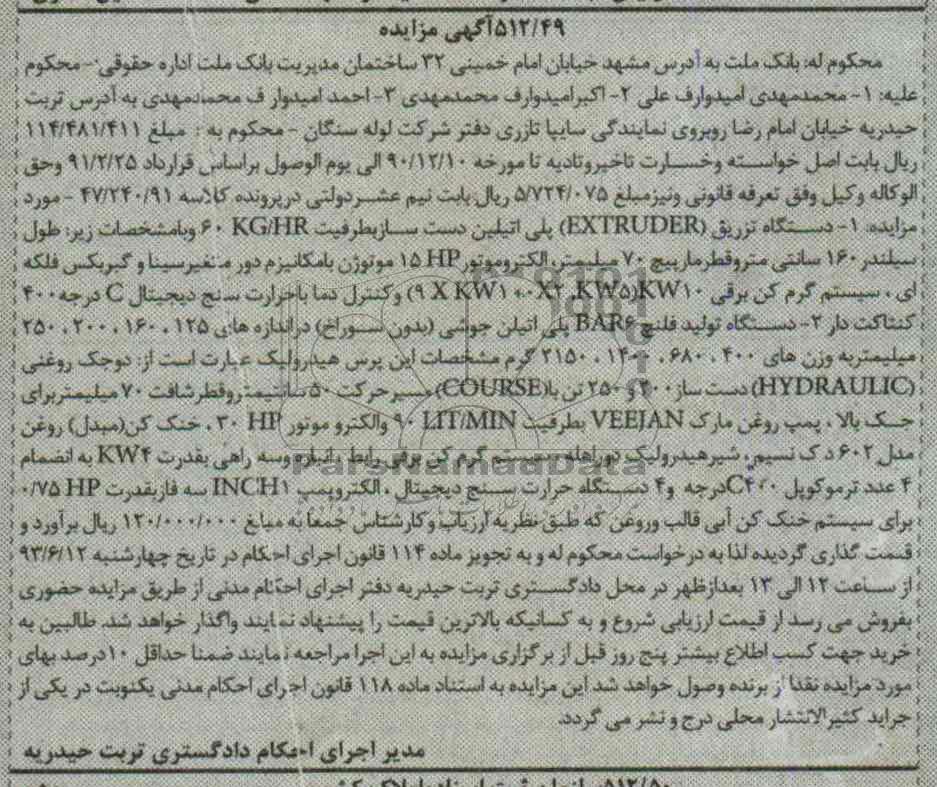 ۵۱۲/۴۹آگهی مزایده
محکوم له: بانک ملت به آدرس مشهد خیابان امام خمینی ۳۲ ساختمان مدیریت بانک ملت اداره حقوقی -محکوم
علیه: ۱- محمدمهدی امیدوارف علی ۲- اکبرامیدوارف محمدمهدی ۳- احمد امیدوار ف محمدمهدی به آدرس تربت
حیدریه خیابان امام رضا روبروی نمایندگی سایپا تازری دفتر شرکت لوله سنگان - محکوم به : مبلغ ۱۱۴/۴۸۱/۴۱۱
ریال بابت اصل خواسته وخسارت تاخیروتادیه تا مورخه ۹۰/۱۲/۱۰ الی یوم الوصول براساس قرارداد ۹۱/۲/۲۵ وحق
الوکاله وکیل وفق تعرفه قانونی ونیزمبلغ ۵/۷۲۴/۰۷۵ ریال بابت نیم عشردولتی درپرونده کلاسه ۴۷/۲۴۰/۹۱ - مورد
مزایده: ۱- دستگاه تزریق (EXTRUDER) پلی اتیلین دست سازبظرفیت ۶۰ KG/HR وبامشخصات زیر: طول
سیلندر ۱۶۰ سانتی متروقطرمارپیچ ۷۰ میلیمتر، الکتروموتور ۱۵ HP موتوژن بامکانیزم دور متغیرسینا و گیربکس فلکه
ای ، سیستم گرم کن برقی KW۱۰ وکنترل دما باحرارت سنج دیجیتال C درجه ۴۰۰
کنتاکت دار ۲- دستگاه تولید فلنچ BAR۶ پلی اتیلن جوشی (بدون سوراخ) دراندازه های ۱۲۵ ، ۱۶۰ ، ۲۰۰ ، ۲۵۰
میلیمتربه وزن های ۴۰۰ ، ۶۸۰ ، ۱۴۰۰ ، ۲۱۵۰ گرم مشخصات این پرس هیدرولیک عبارت است از: دوجک روغنی
(HYDRAULIC) دست ساز ۲۰۰ و ۲۵۰ تن با(COURSE) مسیرحرکت ۵۰ سانتیمتروقطرشافت ۷۰ میلیمتربرای
جک بالا ، پمپ روغن مارک VEEJAN بظرفیت ۹۰ LIT/MIN والکترو موتور ۳۰ HP ، خنک کن(مبدل) روغن
مدل ۶۰۲ د ک نسیم ، شیرهیدرولیک دوراهه، سیستم گرم کن برقی رابط باتیان وسه راهی بقدرت KW۴ به انضمام
۴ عدد ترموکوپل C۴۰۰درجه و۴ دستگاه حرارت سنج دیجیتال ، الکتروپمپ INCH۱ سه فازبقدرت ۰/۷۵ HP
برای سیستم خنک کن آبی قالب وروغن که طبق نظریه ارزیاب وکارشناس جمعا به مبلغ ۱۳۰/۰۰۰/۰۰۰ ریال برآورد و
قیمت گذاری گردیده لذا به درخواست محکوم له و به تجویز ماده ۱۱۴ قانون اجرای احکام در تاریخ چهارشنبه ۹۳/۶/۱۲
از ساعت ۱۲ الی ۱۳ بعدازظهر در محل دادگستری تربت حیدریه دفتر اجرای احکام مدنی از طریق مزایده حضوری
بفروش می رسد از قیمت ارزیابی شروع و به کسانیکه بالاترین قیمت را پیشنهاد نمایند واگذار خواهد شد. طالبین به
خرید جهت کسب اطلاع بیشتر پنج روز قبل از برگزاری مزایده به این اجرا مراجعه نمایند ضمنا حداقل ۱۰درصد بهای
مورد مزایده نقدا از برنده وصول خواهد شد این مزایده به استناد ماده ۱۱۸ قانون اجرای احکام مدنی یکنوبت در یکی از
جراید کثیرالانتشار محلی درج و نشر می گردد.
مدیر اجرای احکام دادگستری تربت حیدریه
ParsNamadData